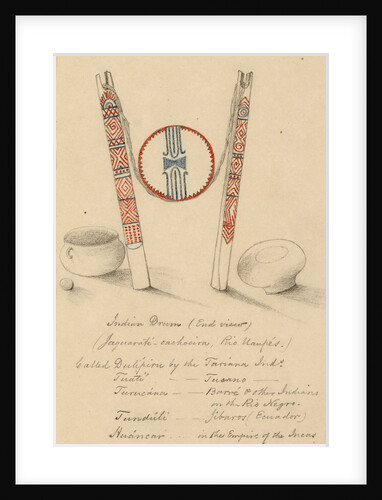 Indian Drum (End view)
(Jaguaraté-cachoeira, Rio Uaupés.)
Called by the Tariana Inds.
— — Tucano —
— — Barré & other Indians
on the Rio Negro.
Tundúli — — Jíbaros (Ecuador)
Huáncar — in the Empire of the Incas